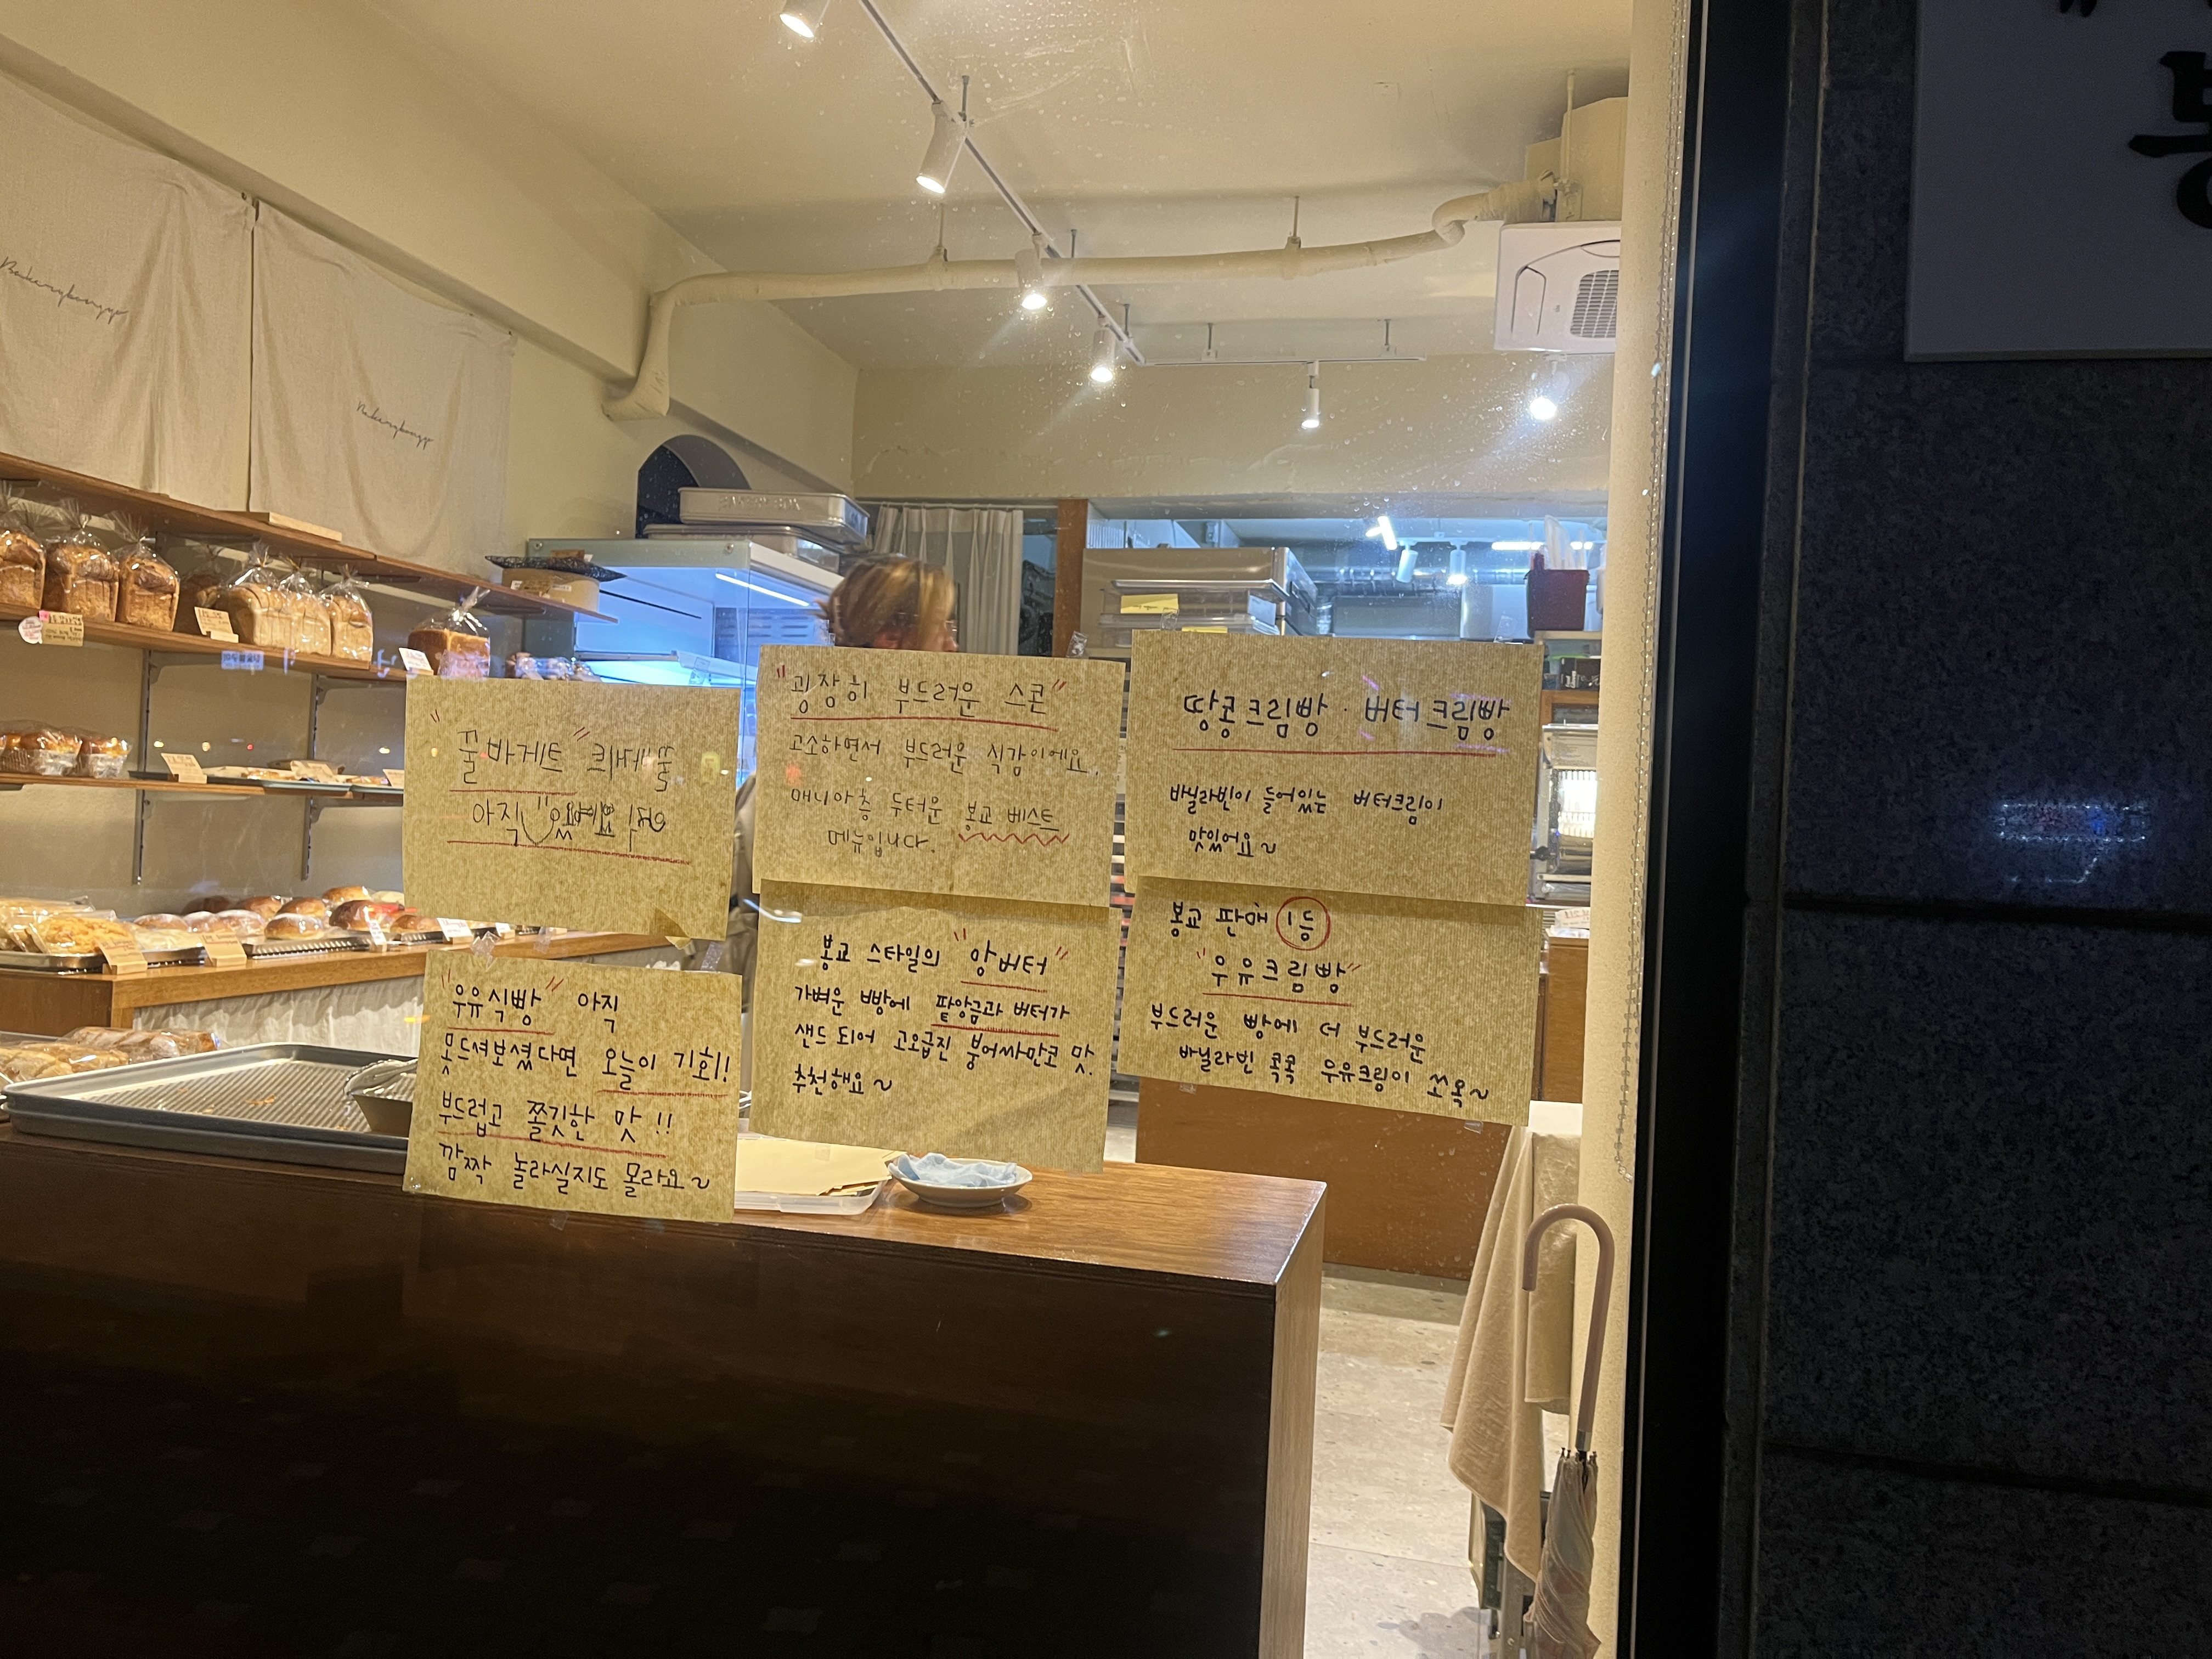 Bakerybongyo
Bakerybongyo
"꿀바게트"
아직
"굉장히 부드러운 스콘"
고소하면서 부드러운 식감이에요.
매니아층 두터운 봉교 베스트
메뉴입니다.
땅콩크림빵 · 버터크림빵
바닐라빈이 들어있는 버터크림이
맛있어요~
"우유식빵" 아직
못드셔보셨다면 오늘이 기회!
부드럽고 쫄깃한 맛!!
깜짝 놀라실지도 몰라요~
봉교 스타일의 "앙버터"
가벼운 빵에 팥앙금과 버터가
샌드 되어 고오급진 붕어싸만코 맛.
추천해요~
봉교 판매 1등
"우유크림빵"
부드러운 빵에 더 부드러운
바닐라빈 콕콕 우유크림이 쏘옥~